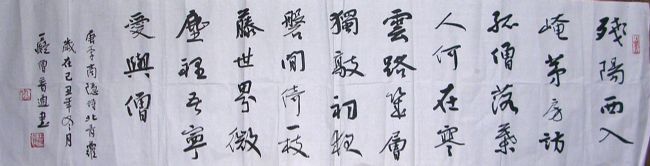 殘陽西入
崦茅房訪
孤僧落葉
人何在寒
雲路幾層
獨敲初夜
磬間倚一枝
藤世界微
塵裡吾寧
愛與僧
唐李商隱詩北青蘿
歲在己丑年冬月
僧普迪書